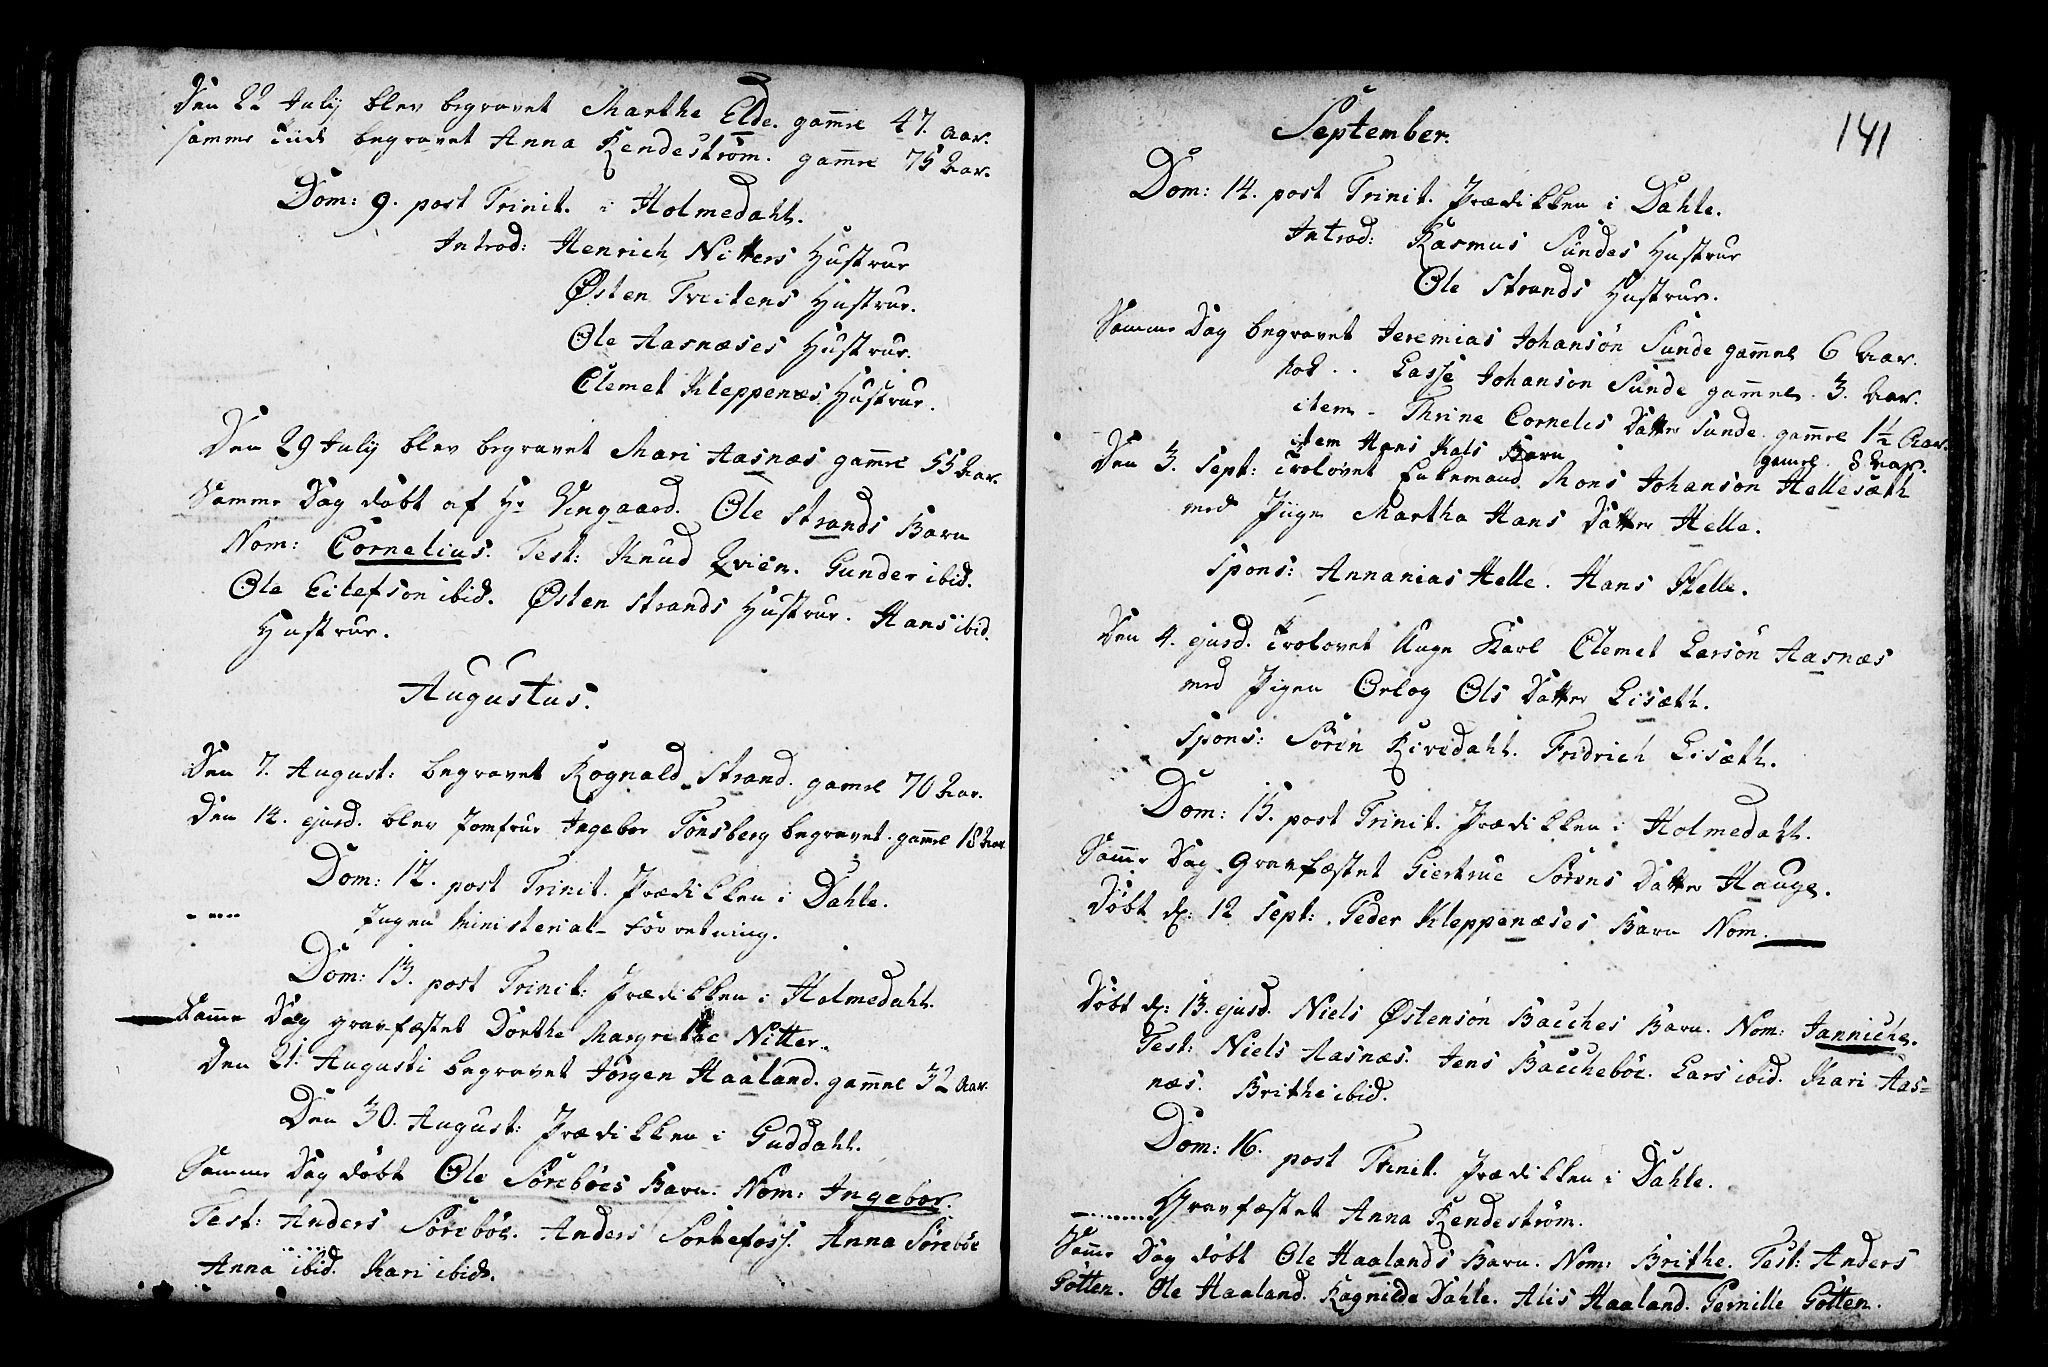 Den 22 July blev begravet Marthe Elde. gamel 47. Aar.
samme Tiid begravet Anna Rendeström. gamel 75 Aar.
Dom: 9. post Trinit. i Holmedahl.
Introd: Henrich Nitters Hustrue
Østen Tveitens Hustrue.
Ole Aasnæses Hustrue.
Clemet Kleppenæs. Hustrue.
Den 29 July blev begravet Mari Aasnæs gamel 55 Aar.
Samme Dag döbt af Hr Vingaard. Ole Strands Barn
Nom: Cornelius. Test: Knud Qvien. Gunder ibid.
Ole Eilefson ibid. Østen Strands Hustrue. Hans ibid.
Hustrue.
Augustus.
Den 7. August: begravet Rognald Strand. gamel 70 Aar.
Den 14. ejusd. blev Jomfrue Ingebor Tönsberg begravet. gamel 18 Aar
Dom: 12. post Trinit. Prædikken i Dahle.
Ingen Ministerial-Forretning.
Dom: 13. post Trinit: Prædikken i Holmedahl.
Samme Dag gravfæstet Dorthe Margrethe Nitter.
Den 21. Augusti begravet Jörgen Haaland. gamel 32 Aar.
Den 30. August: Prædikken i Guddahl.
Samme Dag döbt Ole Söreböes Barn. Nom: Ingebor.
Test: Anders Söreböe. Anders Sortefoss. Anna Söreböe
Anna ibid. Kari ibid.
141
September.
Dom: 14. post Trinit. Prædikken i Dahle.
Introd: Rasmus Sundes Hustrue
Ole Strands Hustrue.
Samme Dag begravet Jeremias Johansön Sunde gamel 6 Aar.
hos . . Lasse Johanson Sunde gamel. 3. Aar.
item - Thrine Cornelis Datter Sunde gamel 1½ Aar.
item Hans Barn gamel. 8 Aar.
Den 3. Sept: Trolovet Enkemand Mons Johanson Hellesæth
med Piige Martha Hans Datter Helle.
Spons: Annanias Helle. Hans Helle.
Den 4. ejusd. Trolovet Unge Karl Clemet Larsön Aasnæs
med Pigen Orlog Ols Datter Lisæth.
Spons: Sören Rividahl. Fridrich Lisæth.
Dom: 15. post Trinit. Prædikken i Holmedahl.
Samme Dag Gravfæstet Giertrue Sörens Datter Hauge.
Döbt d: 12 Sept: Peder Kleppenæses Barn Nom.
Döbt d: 13. ejusd. Niels Østensön Bacches Barn. Nom: Janniche.
Test: Niels Aasnæs. Jens Baccheböe. Lars ibid. Kari Aas-
næs. Brithe ibid.
Dom: 16. post Trinit. Prædikken i Dahle.
Gravfæstet Anna Rendeström.
Samme Dag döbt Ole Haalands Barn. Nom: Brithe. Test: Anders
Götten. Ole Haaland. Ragnilde Dahle. Alis Haaland. Pernille Götten.